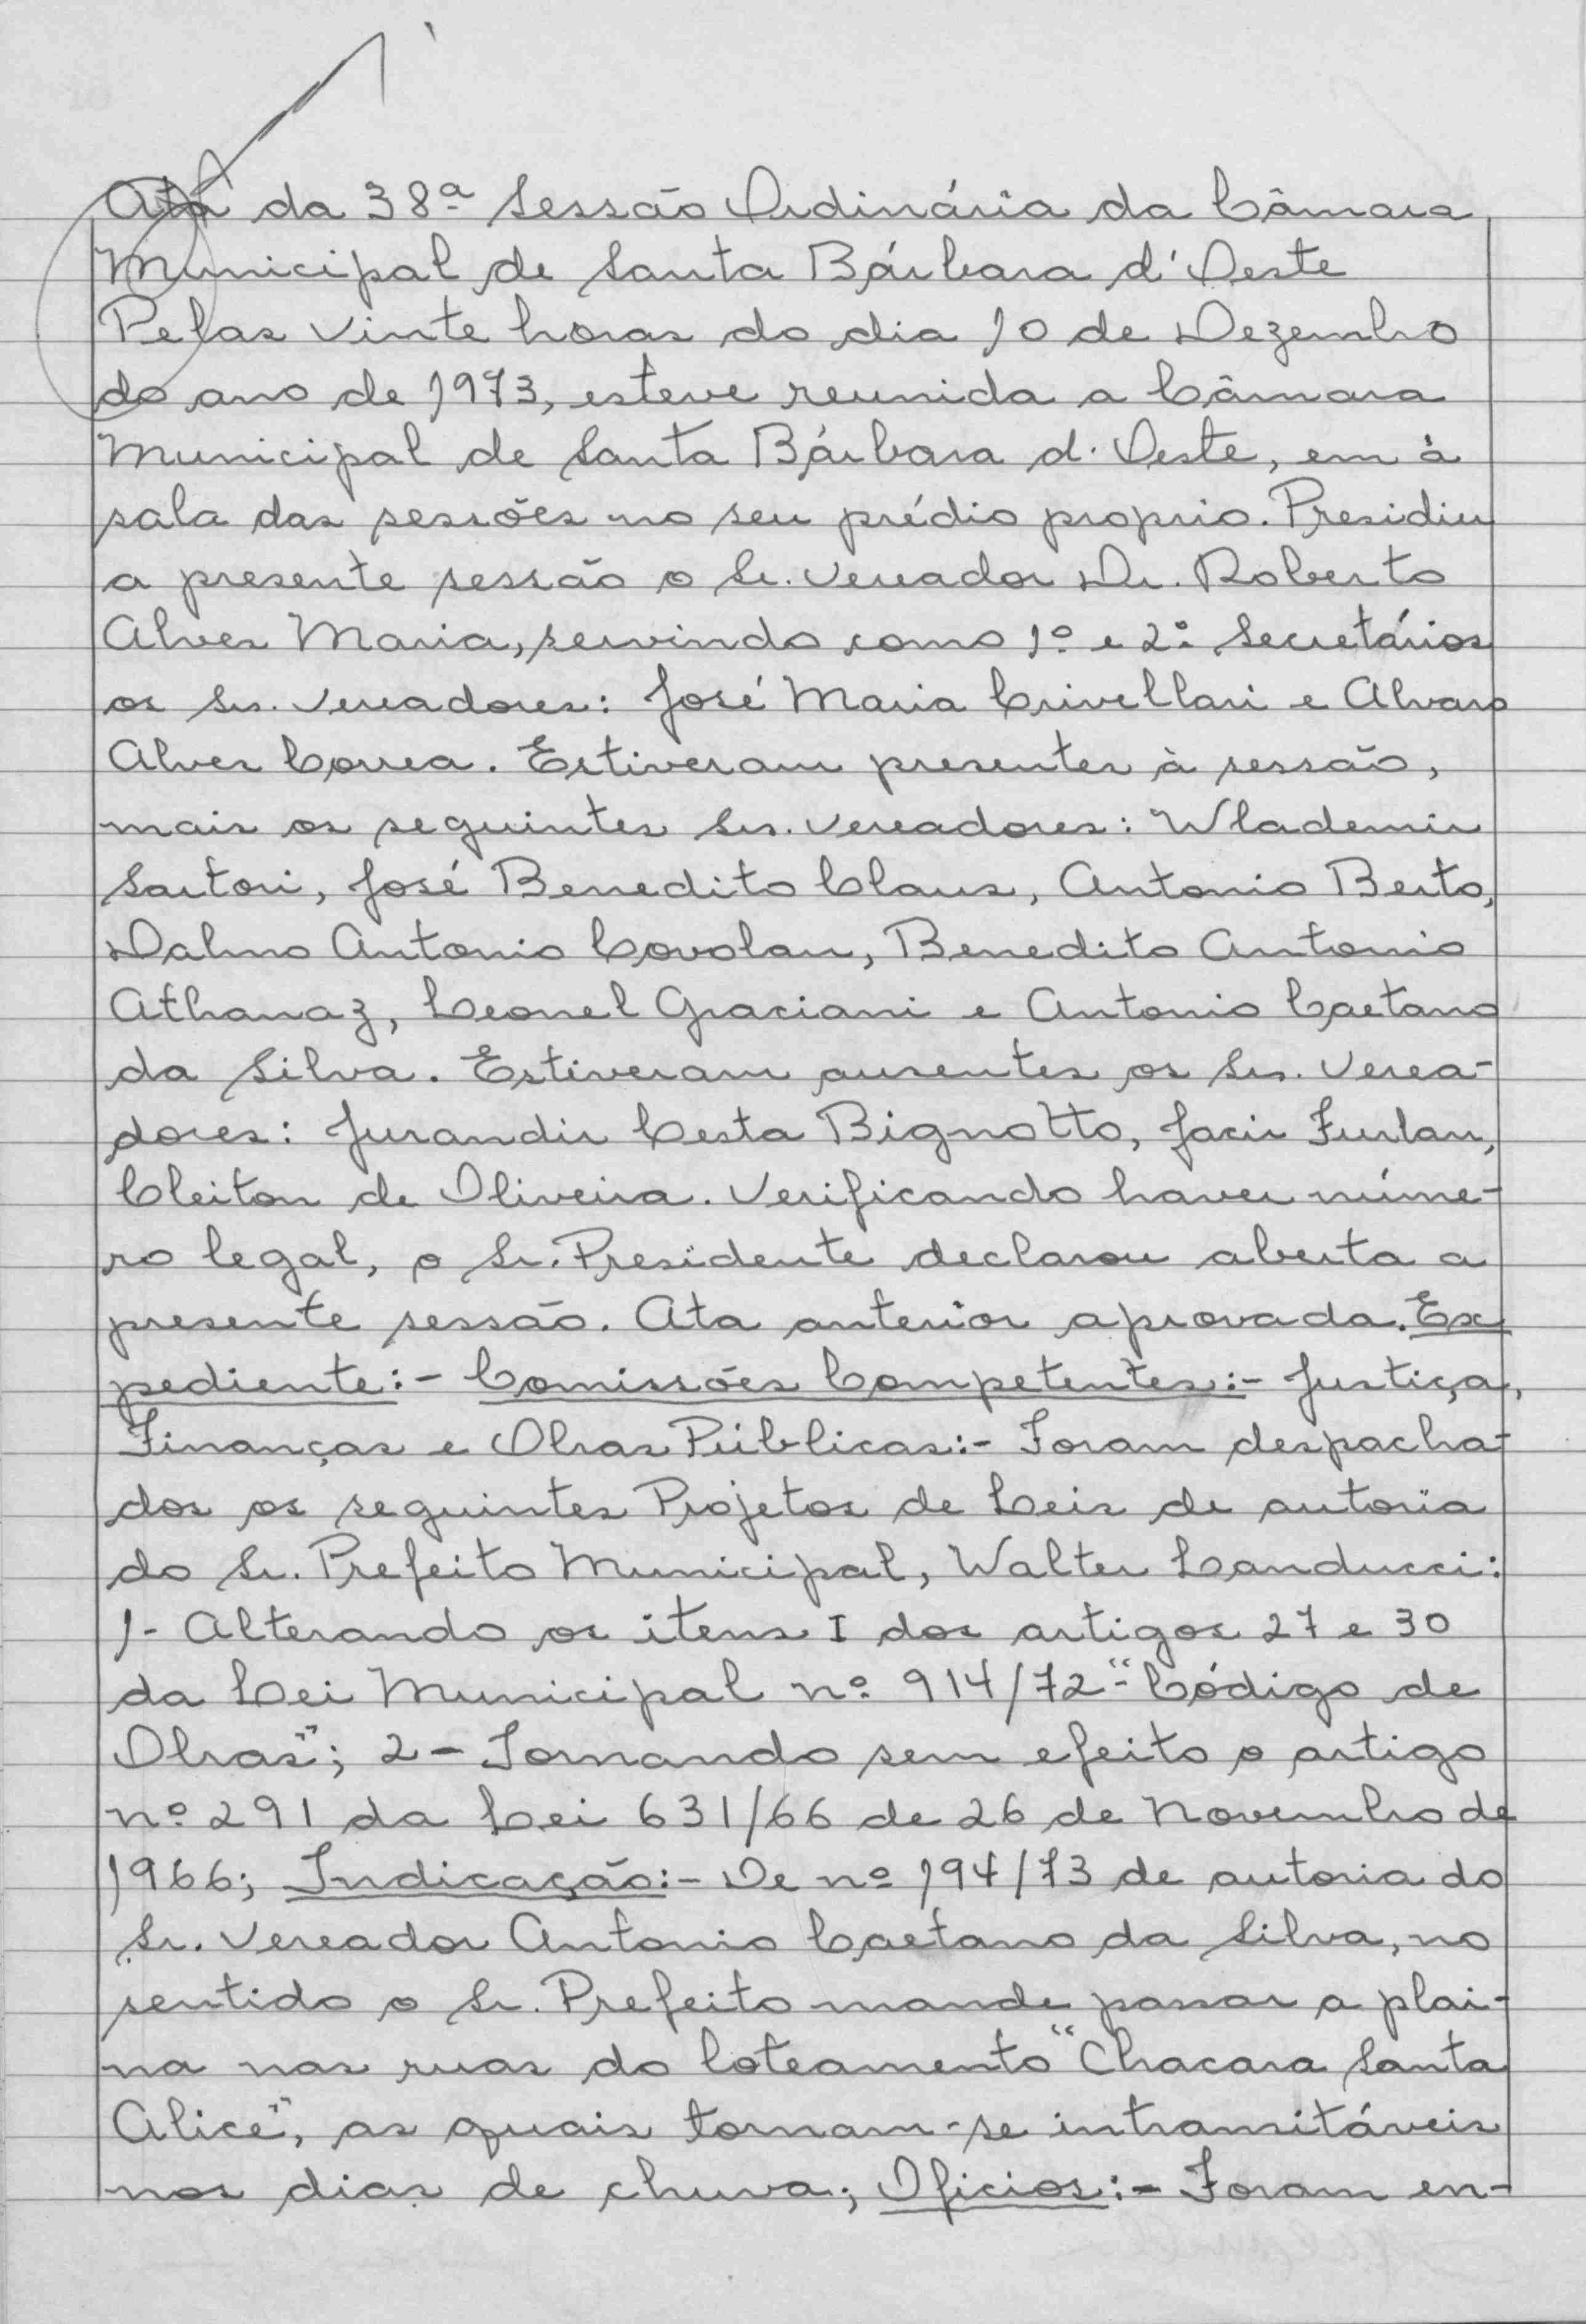 Ata da 38ª Sessão Ordinária da Câmara
Municipal de Santa Bárbara d'Oeste
Pelas vinte horas do dia 10 de Dezembro
do ano de 1973, esteve reunida a Câmara
Municipal de Santa Bárbara d'Oeste, em à
sala das sessões no seu prédio proprio. Presidiu
a presente sessão o Sr. Vereador Dr. Roberto
Alves Maria, servindo como 1º e 2º Secretários
os Srs. Vereadores: José Maria Crivellari e Alvaro
Alves Correa. Estiveram presentes à sessão,
mais os seguintes Srs. Vereadores: Wlademir
Sartori, José Benedito Claus, Antonio Berto,
Dalmo Antonio Covolan, Benedito Antonio
Athanaz, Leonel Graciani e Antonio Caetano
da Silva. Estiveram ausentes os Srs. Verea-
dores: Jurandir Certa Bignotto, Jacir Furlan,
Cleiton de Oliveira. Verificando haver núme-
ro legal, o Sr. Presidente declarou aberta a
presente sessão. Ata anterior aprovada. Ex
pediente:- Comissões Competentes:- Justiça,
Finanças e Obras Públicas:- Foram despacha-
dos os seguintes Projetos de Leis de autoria
do Sr. Prefeito Municipal, Walter Landucci:
1- Alterando os itens I dos artigos 27 e 30
da Lei Municipal nº 914/72-"Código de
Obras"; 2- Tornando sem efeito o artigo
nº 291 da Lei 631/66 de 26 de Novembro de
1966; Indicação:- De nº 194/73 de autoria do
Sr. Vereador Antonio Caetano da Silva, no
sentido o Sr. Prefeito mande passar a plai-
na nas ruas do loteamento "Chacara Santa
Alice", as quais tornam-se intransitáveis
nos dias de chuva; Oficios:- Foram en-